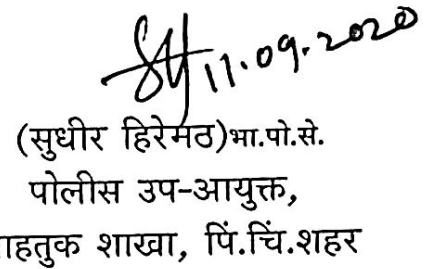 11.09.2020
(सुधीर हिरेमठ)भा.पो.से.
पोलीस उप-आयुक्त,
ाहतुक शाखा, पिं.चिं.शहर